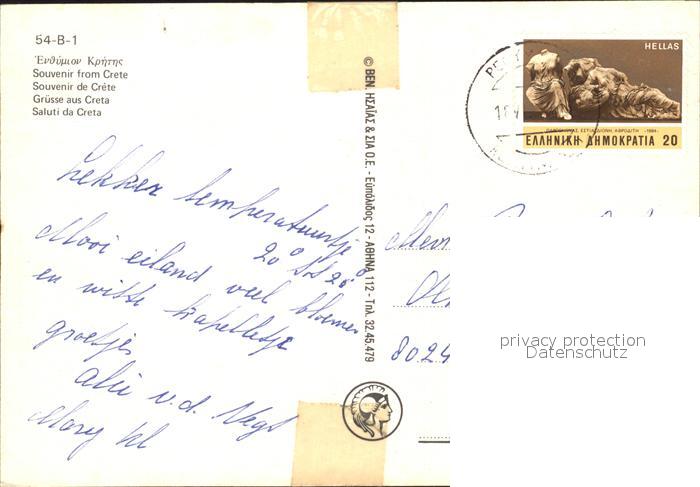 54-B-1
Ἐνθύμιον Κρήτης
Souvenir from Crete
Souvenir de Crète
Grüsse aus Creta
Saluti da Creta
Lekker temperatuurtje
20° à 25°
Mooi eiland veel bloemen
en witte kapelletje
groetjes
Alie v.d. Vegt
Mary
© ΒΕΝ. ΗΣΑΪΑΣ & ΣΙΑ Ο.Ε. - Εὐπόλιδος 12 - ΑΘΗΝΑ 112 - Τηλ. 32.45.479
HELLAS
ΕΛΛΗΝΙΚΗ ΔΗΜΟΚΡΑΤΙΑ 20
8024
privacy protection
Datenschutz